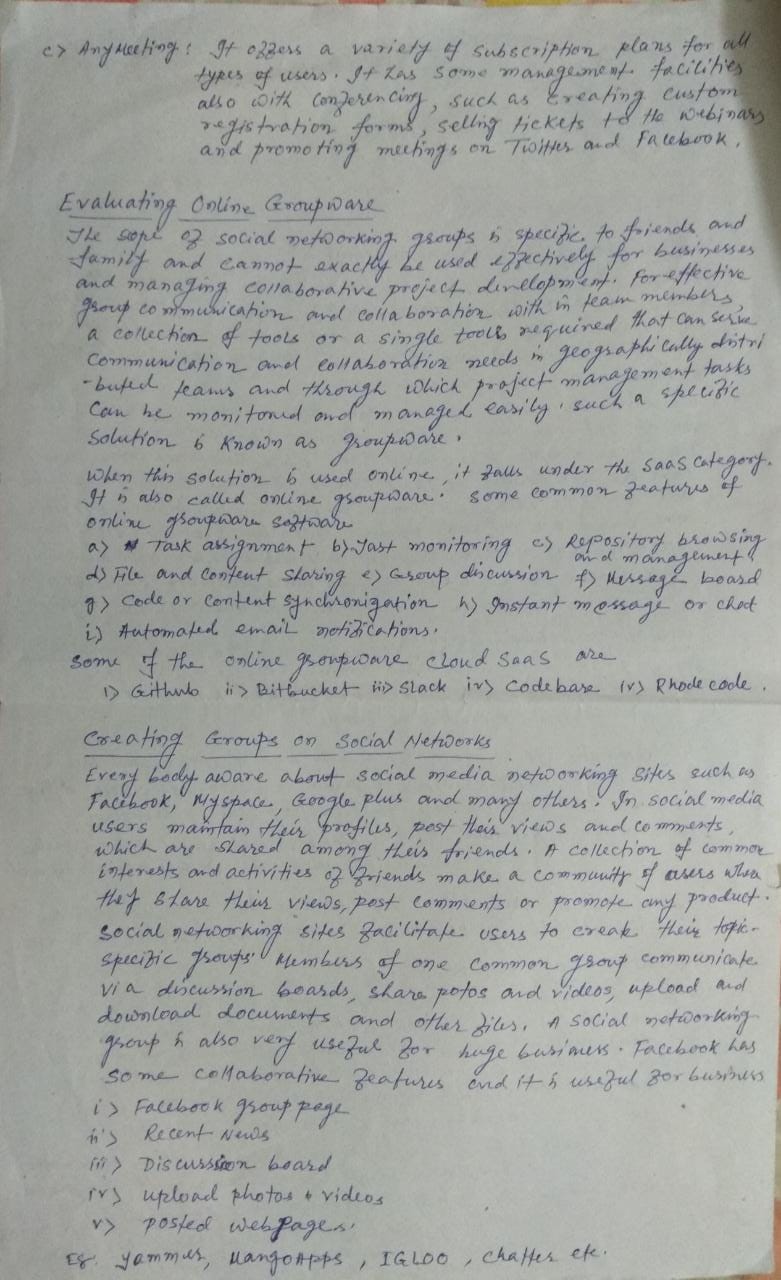 c> AnyMeeting: It offers a variety of subscription plans for all
types of users. It has some management facilities
also with conferencing, such as creating custom
registration forms, selling tickets to the webinars
and promoting meetings on Twitter and Facebook.
Evaluating Online Groupware
The scope of social networking groups is specific to friends and
family and cannot exactly be used effectively for businesses
and managing collaborative project development. For effective
group communication and collaboration with in team members,
a collection of tools or a single tool is required that can serve
communication and collaboration needs in geographically distri
-buted teams and through which project management tasks
can be monitored and managed easily. such a specific
solution is known as groupware.
When this solution is used online, it falls under the SaaS category.
It is also called online groupware. some common features of
online groupware software
a> Task assignment b> Tast monitoring c> Repository browsing
and management
d> File and content sharing e> Group discussion f> Message board
g> Code or content synchronization h> Instant message or chat
i> Automated email notifications.
some of the online groupware cloud SaaS are
i> Github ii> Bitbucket iii> Slack iv> Codebase iv> Rhode code.
Creating Groups on Social Networks
Every body aware about social media networking sites such as
Facebook, Myspace, Google plus and many others. In social media
users maintain their profiles, post their views and comments,
which are shared among their friends. A collection of common
interests and activities of friends make a community of users when
they share their views, post comments or promote any product.
Social networking sites facilitate users to create their topic-
specific groups. Members of one common group communicate
via discussion boards, share potos and videos, upload and
download documents and other files. A social networking
group is also very useful for huge business. Facebook has
some collaborative features and it is useful for business
i> Facebook group page
ii> Recent News
iii> Discussion board
iv> upload photos & videos
v> posted webpages.
Eg. Yammer, MangoApps, IGLOO, Chatter etc.